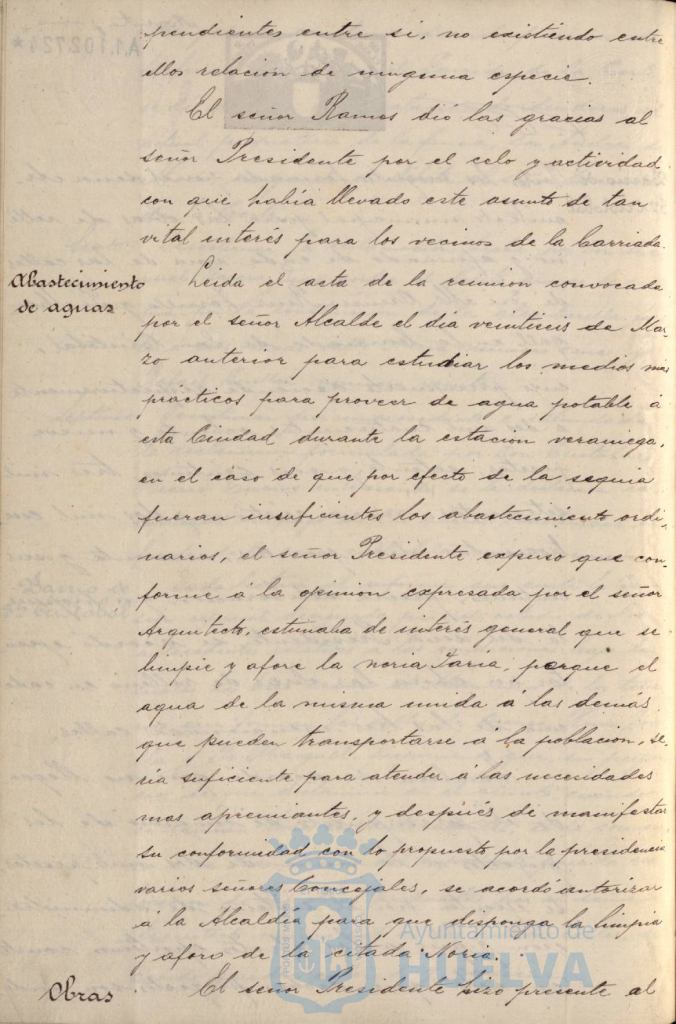 pendientes entre si, no existiendo entre
ellos relación de ninguna especie.
El señor Ramos dió las gracias al
señor Presidente por el celo y actividad
con que había llevado este asunto de tan
vital interés para los vecinos de la barriada.
Abastecimiento
de aguas
Leida el acta de la reunion convocada
por el señor Alcalde el dia veintiseis de Mar-
zo anterior para estudiar los medios mas
prácticos para proveer de agua potable á
esta Ciudad durante la estacion veraniega,
en el caso de que por efecto de la sequia
fueran insuficientes los abastecimiento ordi-
narios, el señor Presidente expuso que con-
forme á la opinion expresada por el señor
Arquitecto, estimaba de interés general que se
limpie y afore la noria, porque el
agua de la misma unida á las demás
que pueden transportarse á la poblacion, se-
ría suficiente para atender á las necesidades
mas apremiantes, y después de manifestar
su conformidad con lo propuesto por la presidencia
varios señores Concejales, se acordó autorizar
á la Alcaldía para que disponga la limpia
y aforo de la citada Noria.
Obras
El señor Presidente hizo presente al
Ayuntamiento de
HUELVA